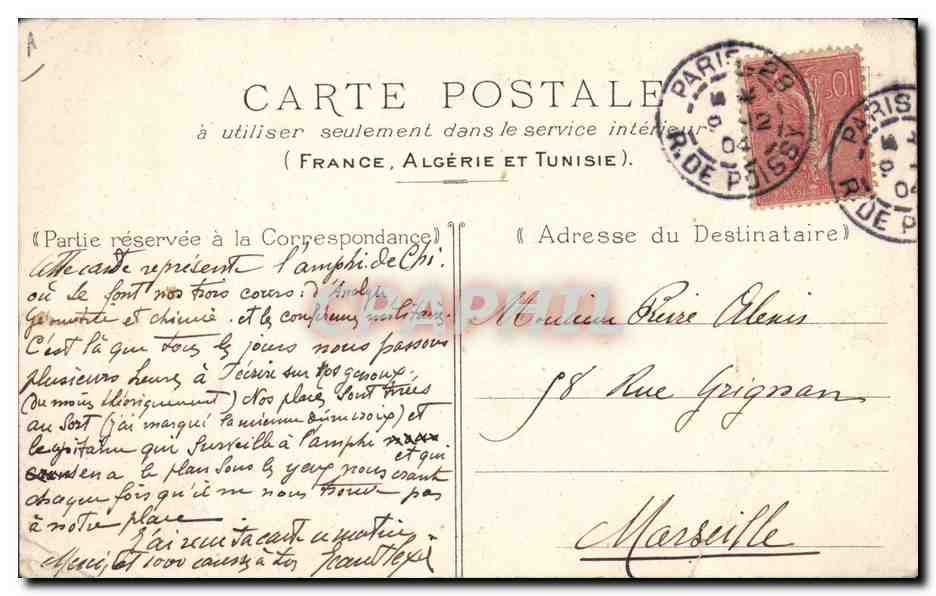 A
CARTE POSTALE
à utiliser seulement dans le service intérieur
(FRANCE, ALGÉRIE ET TUNISIE).
PARIS - 28
5 *
9 12
04
R. DE POISSY
10c
PARIS
5
9
04
R. DE P
(Partie réservée à la Correspondance)
( Adresse du Destinataire )
Cette carte représente l'amphi. de Chi.
où se font nos trois cours : d'Analyse
Géométrie et chimie. et les conférences militaires.
C'est là que tous les jours nous passons
plusieurs heures à écrire sur nos genoux.
(du moins théoriquement) Nos places sont tirées
au sort (j'ai marqué la mienne d'une croix) et
le capitaine qui surveille à l'amphi
et qui
en a le plan sous les yeux nous crante
chaque fois qu'il ne nous trouve pas
à notre place
J'ai reçu ta carte ce matin
Merci, et 1000 causes à toi
CPAPHIL
Monsieur Pierre Alexis
58 Rue Grignan
Marseille